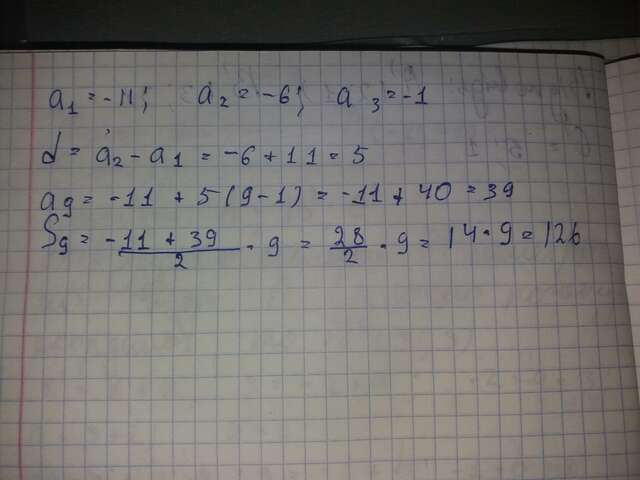 a₁ = -11; a₂ = -6; a₃ = -1
d = a₂ - a₁ = -6 + 11 = 5
a₉ = -11 + 5(9-1) = -11 + 40 = 39
S₉ = (-11 + 39)/2 · 9 = 28/2 · 9 = 14 · 9 = 126